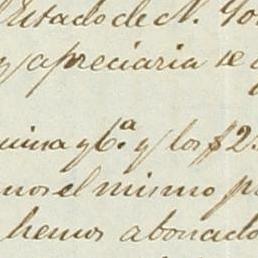 Estado de N. Yo
y apreciaria se
uina y 6.ª y los $2.
mos el mismo p
hemos abonado